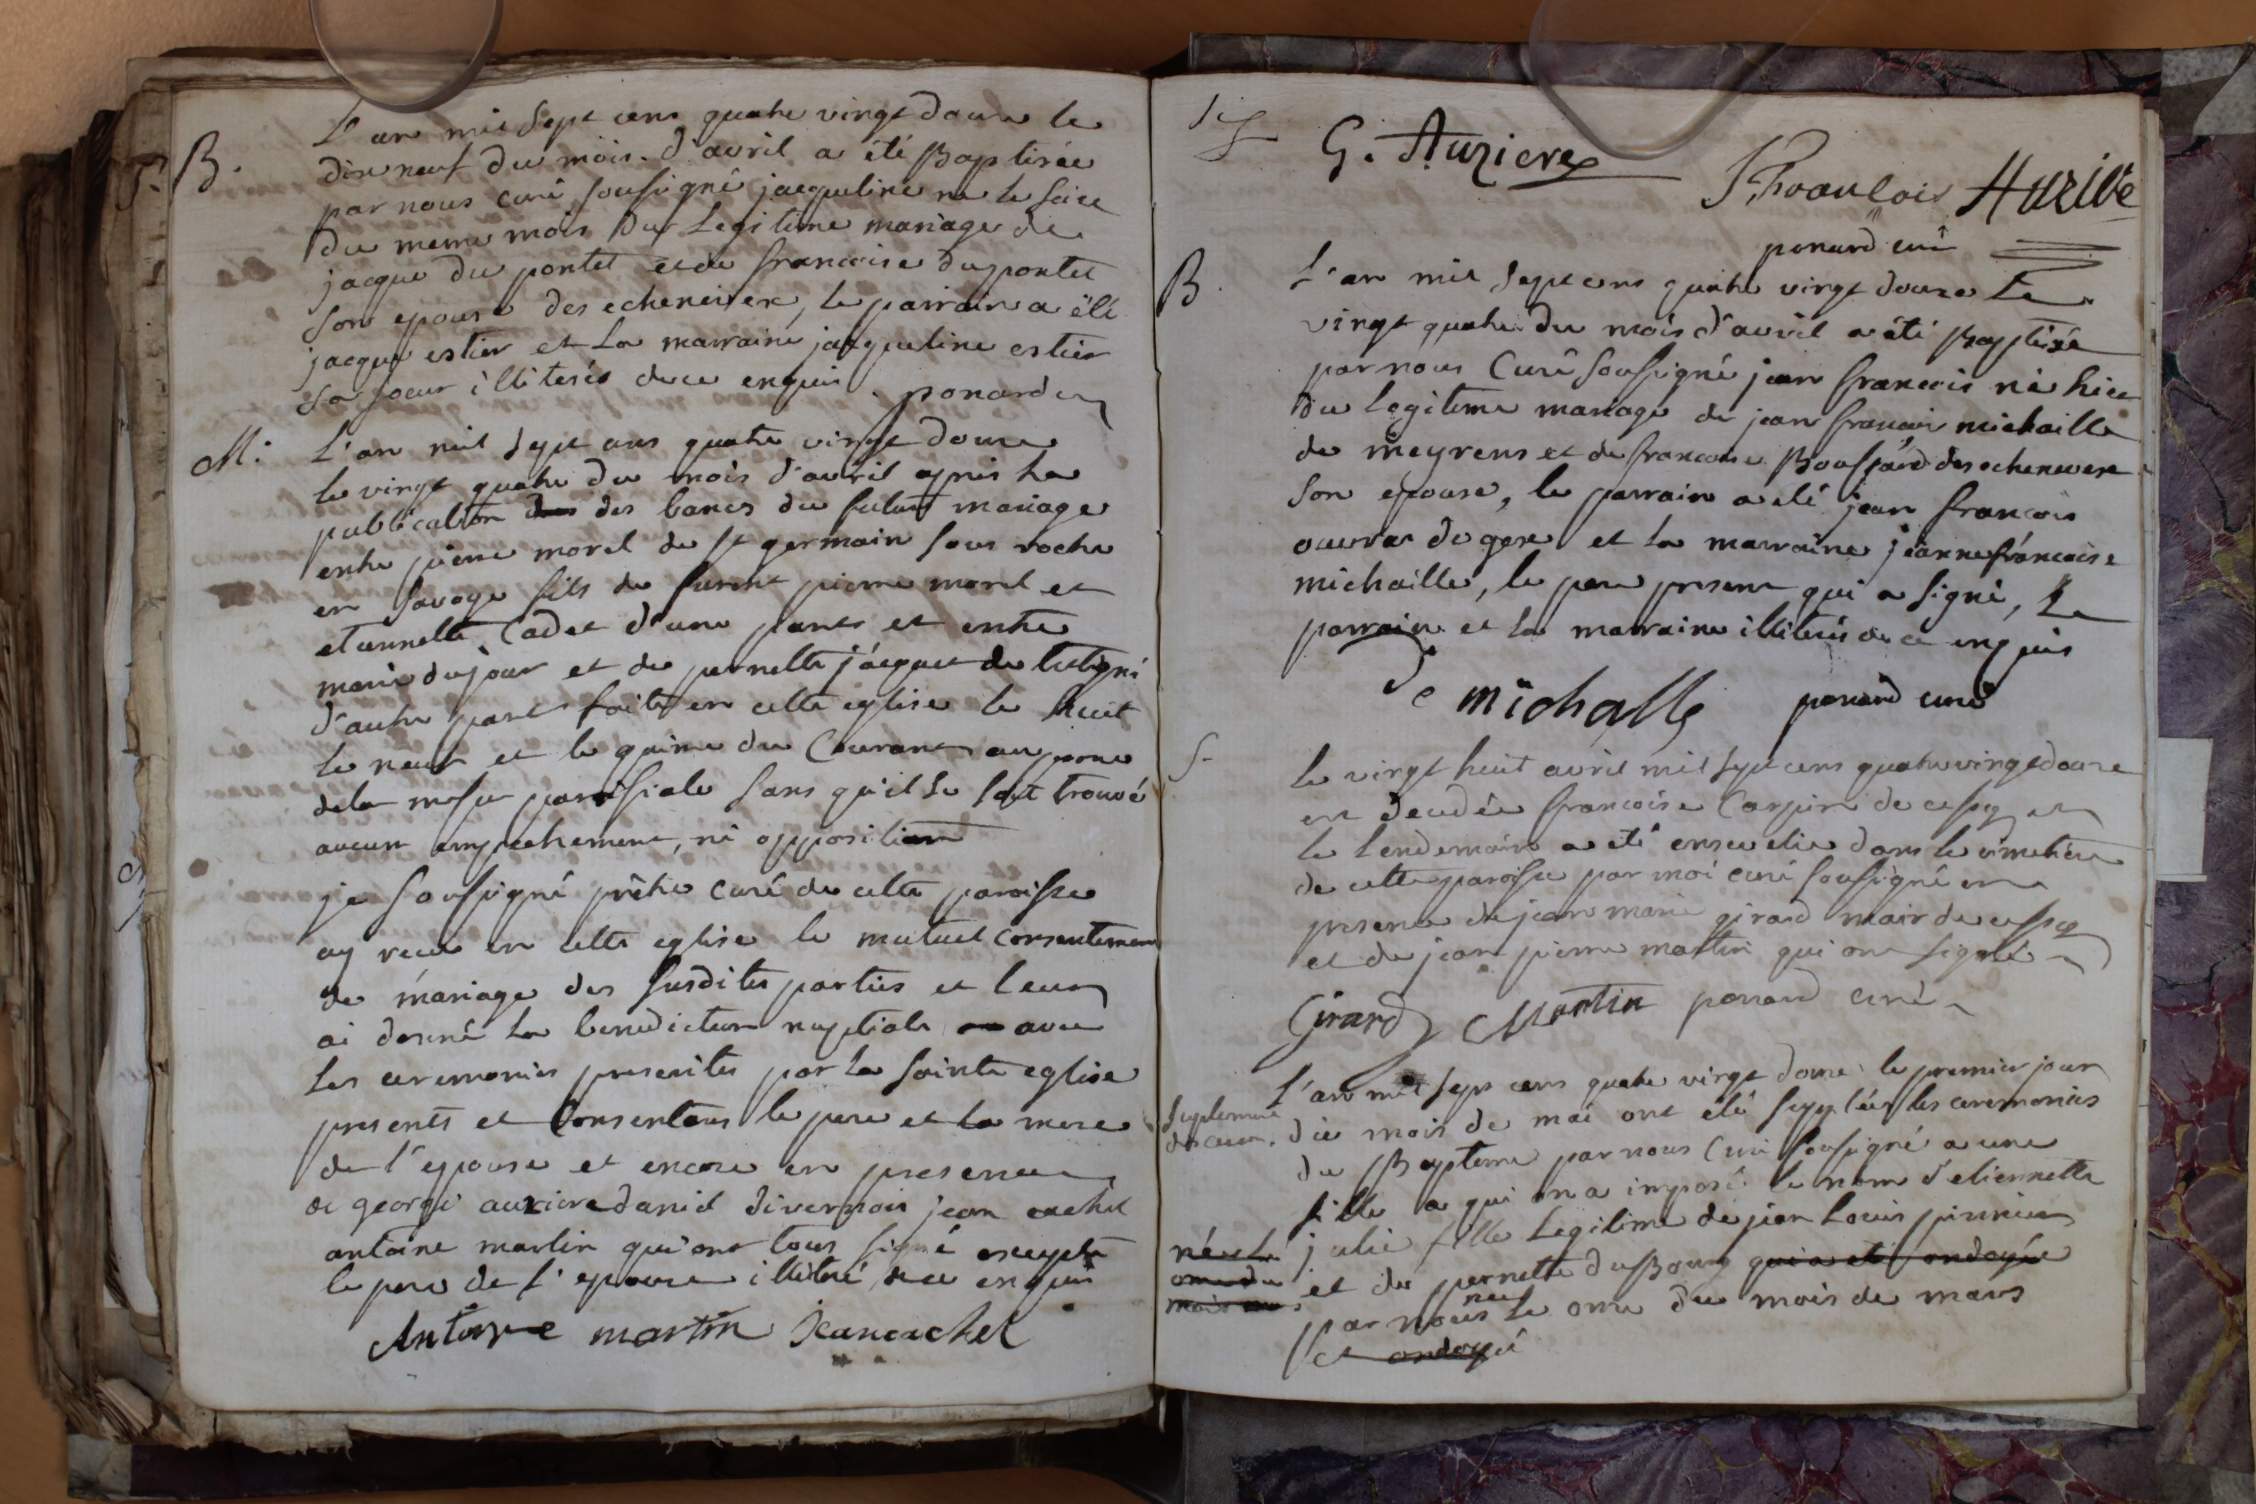 B.
L'an mil sept cens quatre vingt douze le
dix neuf du mois d'avril a été Baptisée
par nous curé soussigné jacqueline née le seize
du meme mois du Legitime mariage de
jacque du pontet et de francoise dupontet
son epouse des echenevex, le parrain a été
jacque estier et La marraine jacqueline estier
sa soeur illiterés de ce enquis ponard
M:
L'an mil sept cens quatre vingt douze
le vingt quatre du mois d'avril après la
publication des bancs du futur mariage
entre pierre morel de st germain sous roche
en savoye fils de furent pierre morel et
etiennette Cadet d'une part et entre
marie dujour et de pernette jacquet de
d'autre part faite en cette eglise le huit
le neuf et le quinze du Courant au prone
de la messe paroissiale sans qu'il se soit trouvé
aucun empechement, ni opposition
je soussigné prêtre curé de cette paroisse
ay recu en cette eglise le mutuel consentement
de mariage des susdites parties et leur
ai donné la benediction nuptiale avec
les ceremonies prescrites par la sainte eglise
presents et Consentans le pere et la mere
de l'epouse et encore en presence
de george auziere daniel divernois jean cachet
antoine martin qui ont tous signé excepté
le pere de l'epouse illitéré de ce enquis
Antoine martin Jean cachet
G. Auziere
ponard curé
B.
L'an mil sept cens quatre vingt douze Le
vingt quatre du mois d'avril a été Baptisé
par nous Curé soussigné jean francois né hier
du legitime mariage de jean francois michaille
de meyrens et de francoise Boussard des echenevex
son epouse, le parrain a été jean francois
de gex et la marraine jeanne francoise
michaille, le pere present qui a signé, Le
parrain et la marraine illiterés de ce enquis
michalle ponard curé
S.
le vingt huit avril mil sept cens quatre vingt douze
est decedée francoise Carpin de ce and
le lendemain a été ensevelie dans le cimetière
de cette paroisse par moi curé soussigné en
presence de jean marie girard mair de ce
et de jean pierre martin qui ont signé
Girard Martin ponard curé
Suplement
des cerem.
L'an mil sept cens quatre vingt douze le premier jour
du mois de mai ont été supplées les ceremonies
du Bapteme par nous Curé soussigné a une
fille a qui on a imposé le nom d'etiennette
julie fille Legitime de jean Louis
née le
onze du
mois
et de pernette duBourg qui a été ondoyée
par nous née le onze du mois de mars
et ondoyé